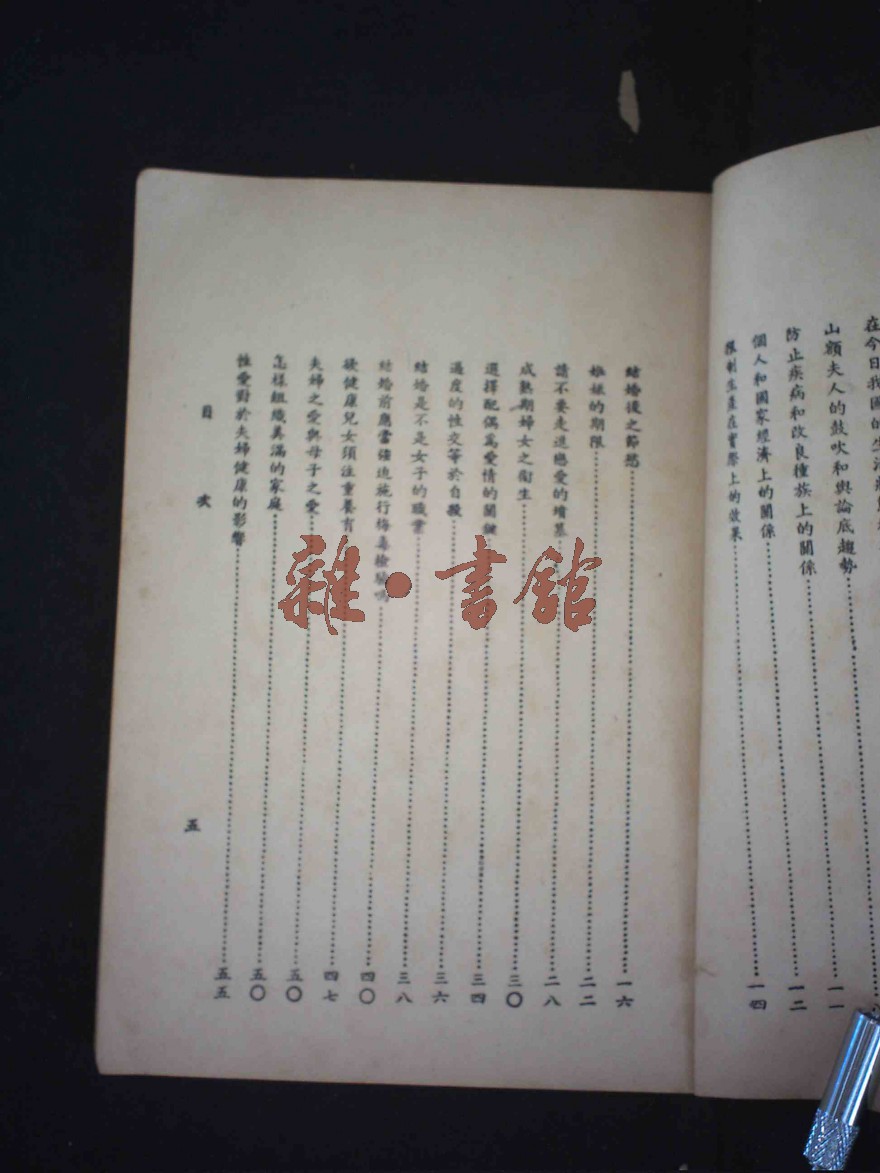 在今日我國的生活
山額夫人的鼓吹和輿論底趨勢……一一
防止疾病和改良種族上的關係……一二
個人和國家經濟上的關係……
限制生產在實際上的效果……一四
結婚後之節慾……一六
姙娠的期限……二二
請不要走進戀愛的墳墓……二八
成熟期婦女之衛生……三〇
選擇配偶爲愛情的關鍵……三四
過度的性交等於自殺……三六
結婚是不是女子的職業……三八
結婚前應當强迫施行梅毒檢驗嗎……四〇
欲健康兒女須注重養育……四七
夫婦之愛與母子之愛……五〇
怎樣組織美滿的家庭……五〇
性愛對於夫婦健康的影響……五五
目次
五
雜·書館